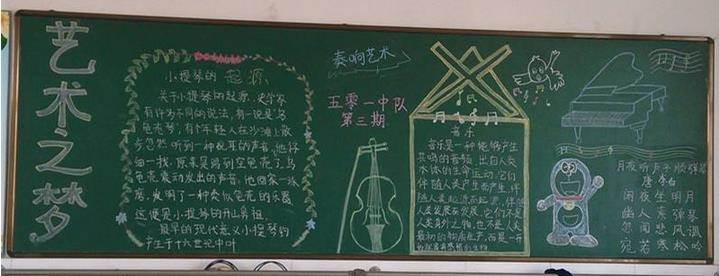 艺术之梦
小提琴的起源
关于小提琴的起源,史学家
有许多不同的说法,有一说是乌
龟壳琴,有个年轻人在沙滩上散
步忽然听到一种悦耳的声音,他仔
细一找,原来是踢到空龟壳了,乌
龟壳震动发出的声音,他回家一琢
磨,发明了一种类似龟壳的乐器
这便是小提琴的开山鼻祖。
最早的现代意义小提琴约
产生于十六世纪中叶
奏响艺术
五零一中队
第三期
音乐
音乐是一种能够产生
共鸣的音频,出自人类
本体的生命运动,它们
伴随人类产生而产生,伴
随人类起源而起源,伴随
人类发展而发展,它们不是
人类身外之物,也不是人类
最初的制造产品,而是一开
月夜听卢子顺弹琴
唐 李白
闲夜坐明月
幽人弹素琴
忽闻悲风调
宛若寒松吟